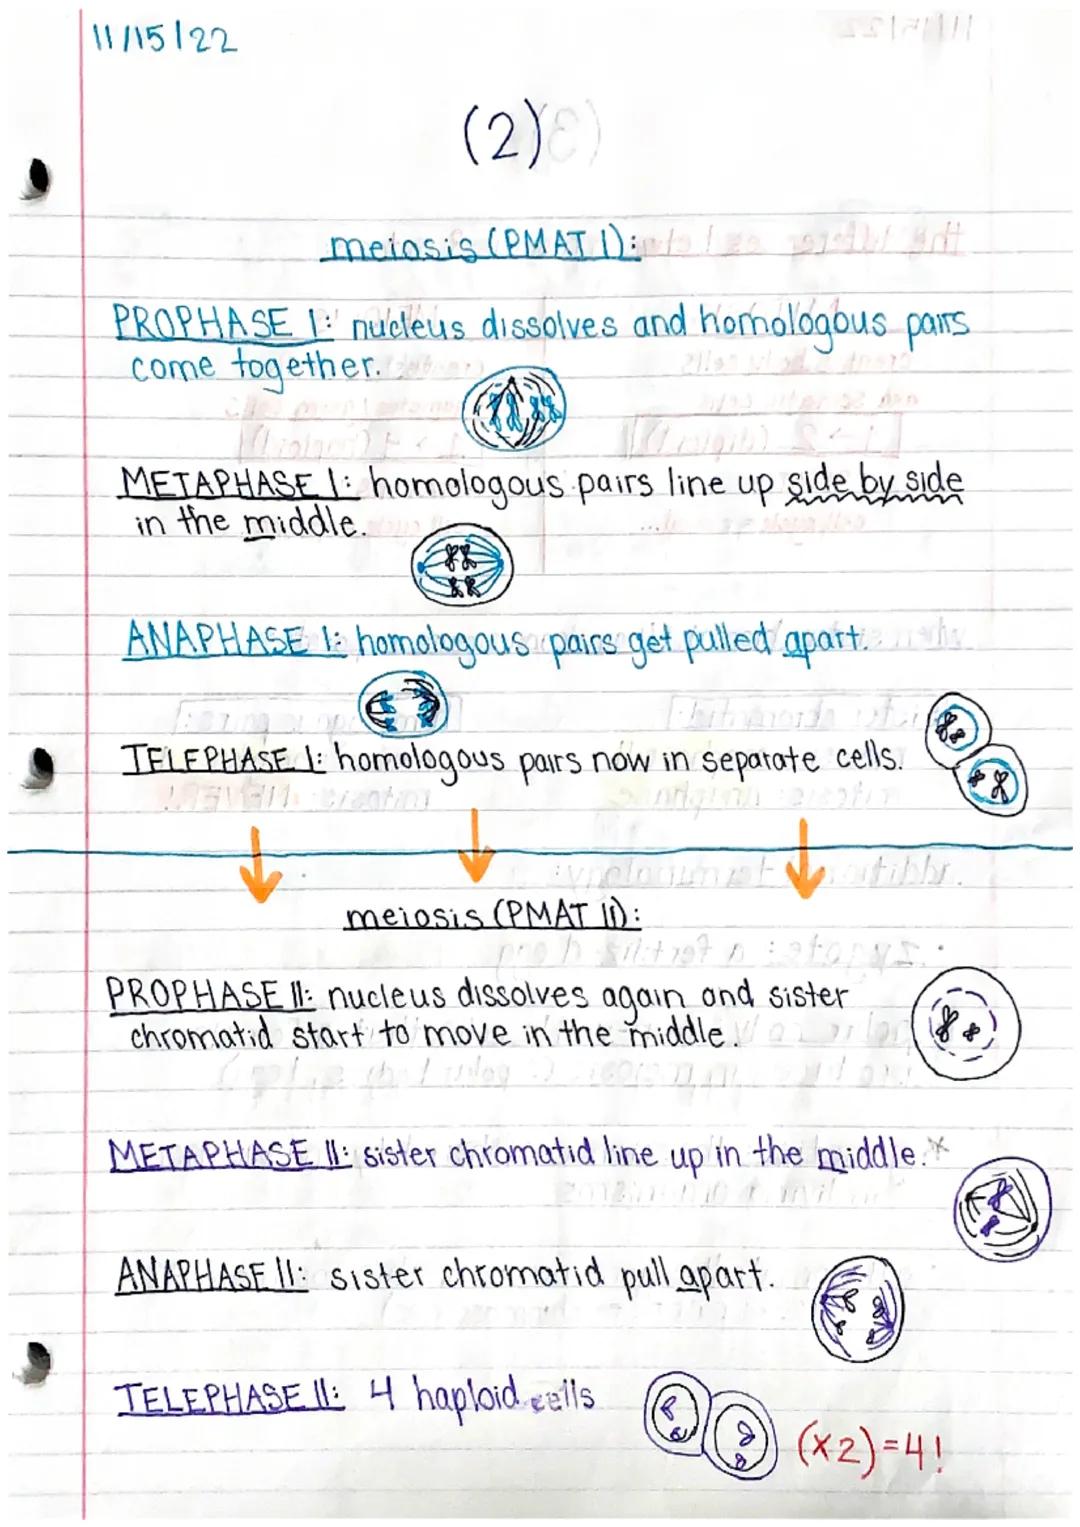 11/15/22
(2)
meiosis (PMAT I):
PROPHASE I: nucleus dissolves and homologous pairs
come together.
METAPHASE I: homologous pairs line up side by side
in the middle.
ANAPHASE I: homologous pairs get pulled apart.
TELEPHASE I: homologous pairs now in separate cells.
meiosis (PMAT II):
PROPHASE II: nucleus dissolves again and sister
chromatid start to move in the middle.
METAPHASE II: sister chromatid line up in the middle.*
ANAPHASE II: sister chromatid pull apart.
TELEPHASE II: 4 haploid cells
(x2)=4!